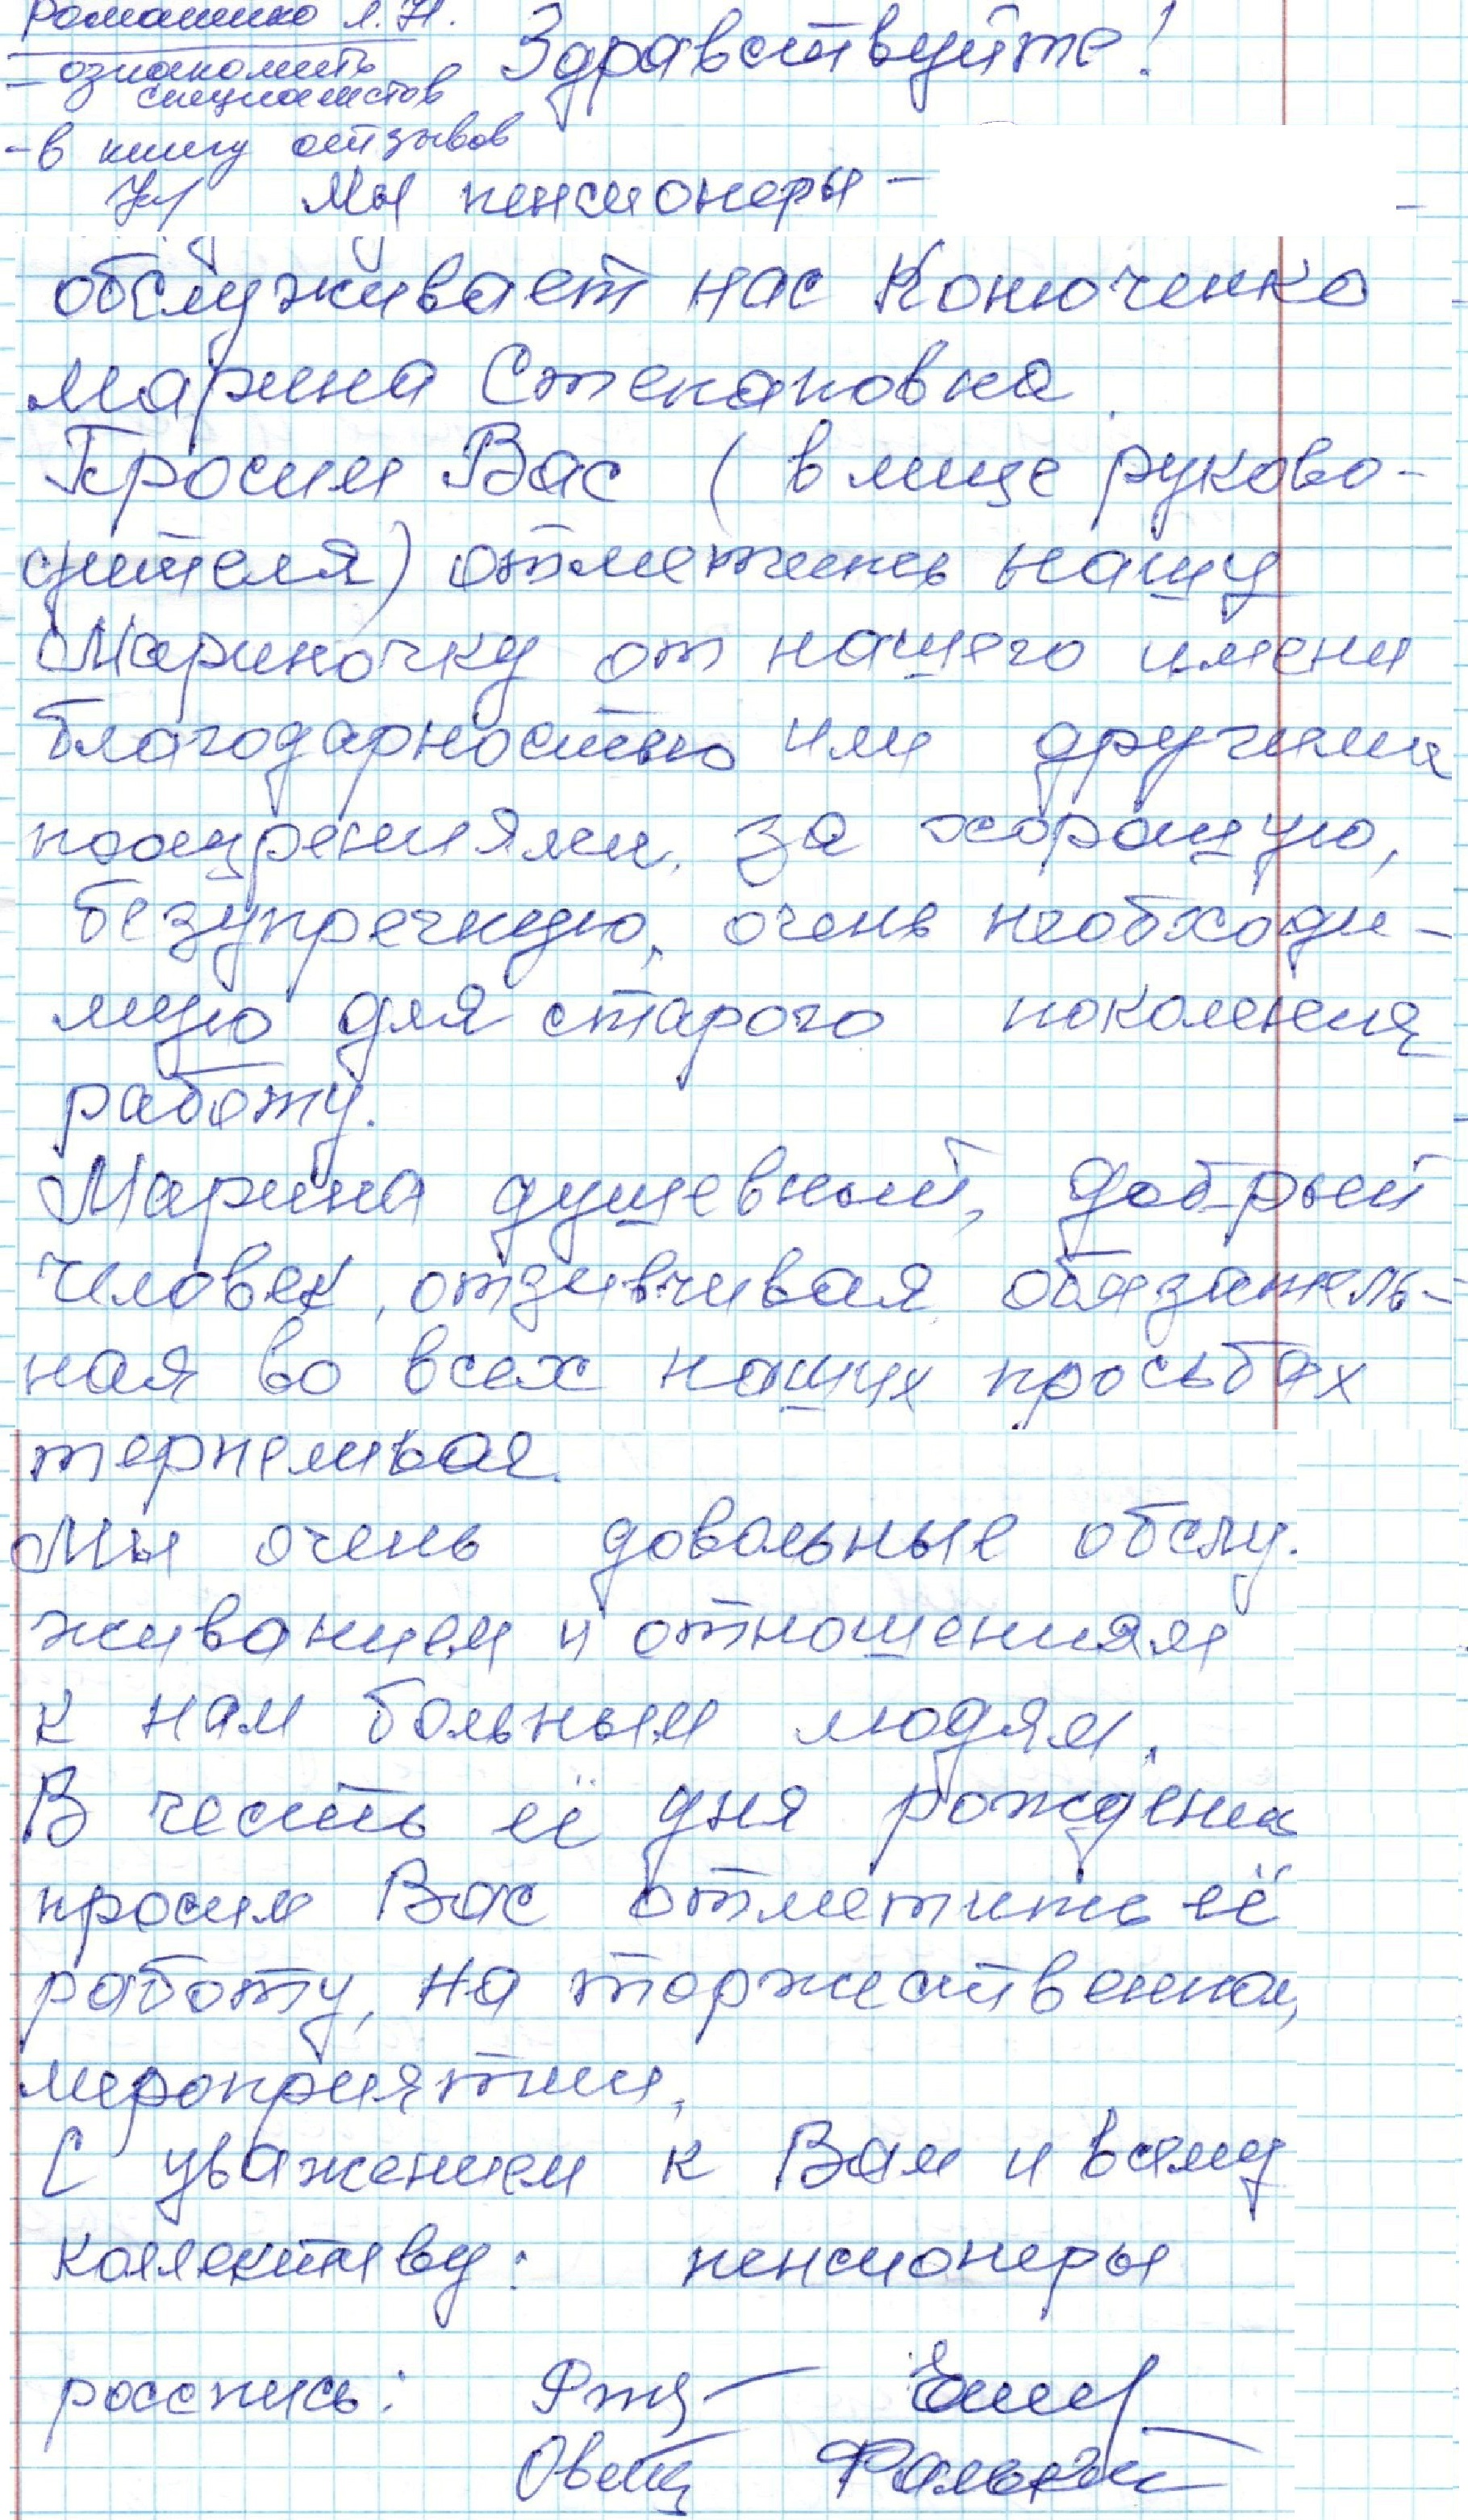 Романенко Л.Н.
- ознакомить
специалистов
- в книгу отзывов
Здравствуйте!
Мы пенсионеры -
обслуживает нас Конюченко
Марина Степановна.
Просим Вас (в лице руково-
дителя) отметить нашу
Мариночку от нашего имени
благодарностью или другими
поощрениями, за хорошую,
безупречную, очень необходи-
мую для старого поколения
работу.
Марина душевный, добрый
человек, отзывчивая, обязатель-
ная во всех наших просьбах
терпеливая.
Мы очень довольные обслу-
живанием и отношениям
к нам больным людям.
В честь её дня рождения
просим Вас отметить её
работу, на торжественном
мероприятии.
С уважением к Вам и всему
коллективу: пенсионеры
росспись: